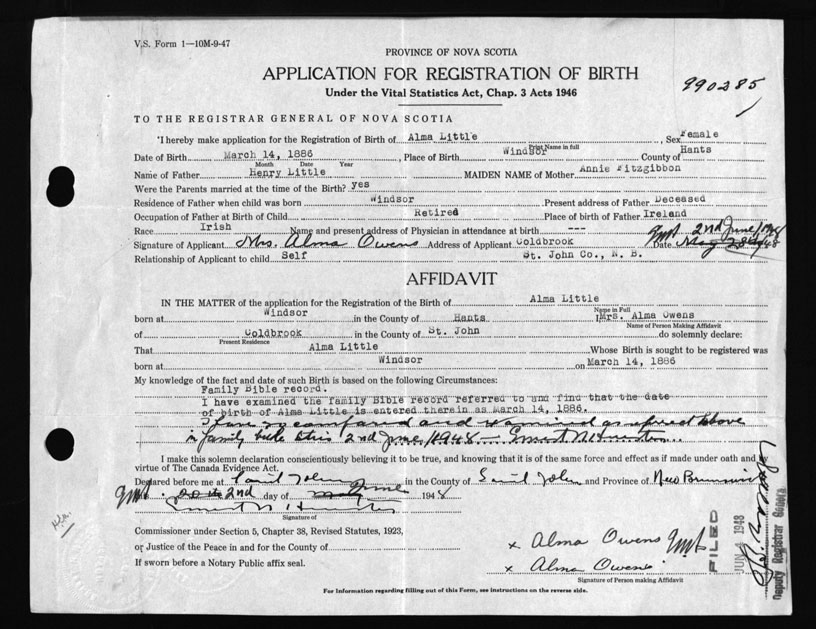 V.S. Form 1—10M-9-47
PROVINCE OF NOVA SCOTIA
APPLICATION FOR REGISTRATION OF BIRTH
990285
Under the Vital Statistics Act, Chap. 3 Acts 1946
TO THE REGISTRAR GENERAL OF NOVA SCOTIA
I hereby make application for the Registration of Birth of Alma Little, Sex Female
Print Name in full
Date of Birth March 14, 1886, Place of Birth Windsor County of Hants
Month Date Year
Name of Father Henry Little MAIDEN NAME of Mother Annie Fitzgibbon
Were the Parents married at the time of the Birth? yes
Residence of Father when child was born Windsor Present address of Father Deceased
Occupation of Father at Birth of Child Retired Place of birth of Father Ireland
Race Irish Name and present address of Physician in attendance at birth ---
Signature of Applicant Mrs. Alma Owens Address of Applicant Coldbrook Date 2nd June/1948
Relationship of Applicant to child Self St. John Co., N. B.
AFFIDAVIT
IN THE MATTER of the application for the Registration of the Birth of Alma Little
Name in Full
born at Windsor in the County of Hants Mrs. Alma Owens
Name of Person Making Affidavit
of Coldbrook in the County of St. John do solemnly declare:
Present Residence
That Alma Little Whose Birth is sought to be registered was
born at Windsor on March 14, 1886
My knowledge of the fact and date of such Birth is based on the following Circumstances:
Family Bible record.
I have examined the family Bible record referred to and find that the date
of birth of Alma Little is entered therein as March 14, 1886.
and as above
in family bible this 2nd June/1948
I make this solemn declaration conscientiously believing it to be true, and knowing that it is of the same force and effect as if made under oath and by
virtue of The Canada Evidence Act.
Declared before me at Saint John in the County of Saint John and Province of New Brunswick
2nd day of June 1948
Signature of
Commissioner under Section 5, Chapter 38, Revised Statutes, 1923,
or Justice of the Peace in and for the County of
If sworn before a Notary Public affix seal.
x Alma Owens
x Alma Owens
Signature of Person making Affidavit
FILED
JUN 4 1948
Deputy Registrar General
For Information regarding filling out of this Form, see instructions on the reverse side.